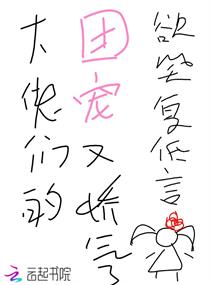 大佬们的
团宠又娇气
欲笑复低言
云起书院